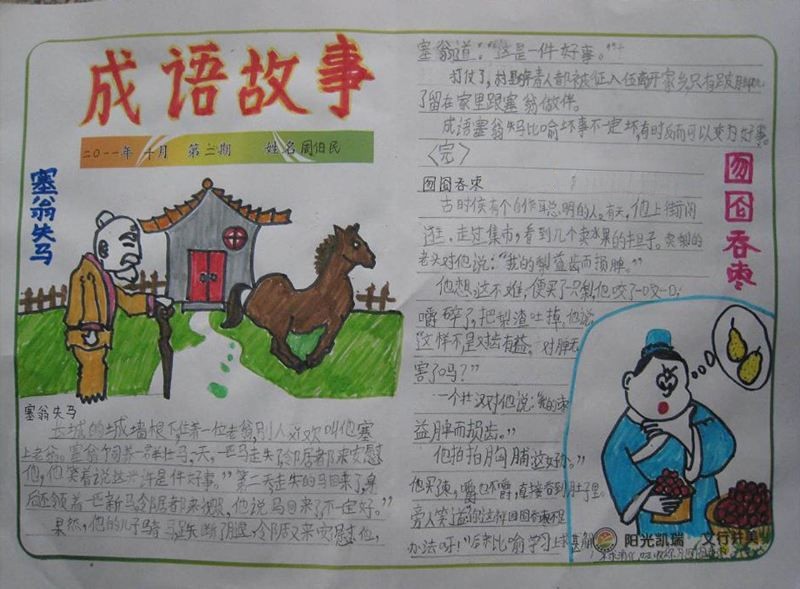 成语故事
二〇一一年 十月 第二期 姓名周伯民
塞翁失马
塞翁失马
长城的城墙根下,住着一位老翁别人好欢叫他塞
上老翁。塞翁
一匹马走失邻居者都来安慰
他,他笑着说这兴许是件好事。"第二天走失的马回来了,身
后还领着一匹新马邻居都来
他说马回来了不一定好。
果然,他的儿子骑马跌断了腿,邻居又来安慰他,
塞翁道:"这是一件好事。"
打仗了,村里
青人都被征入伍离开家乡,只有
了留在家里跟塞翁做伴。
成语塞翁失马比喻坏事不一定坏有时反而可以变为好事。
〈完〉
囫囵吞枣
囫囵吞枣
古时侯有个自作聪明的人。有天,他上街闲
逛。走过集市,看到几个卖水果的担子。卖梨的
老头对他说:"我的梨益齿而损脾。"
他想,这不难,便买了一只梨他咬了一口
嚼碎了,把梨渣吐掉,他说
"这样不是对齿有益。对脾无
害了吗?"
一个
汉对他说:我的枣
益脾而损齿。"
他拍拍胸脯这好办。"
他买枣,嚼也不嚼,直接吞到肚子里。
旁人笑道
办法呀!"后来比喻学习上
阳光凯瑞 文行并美